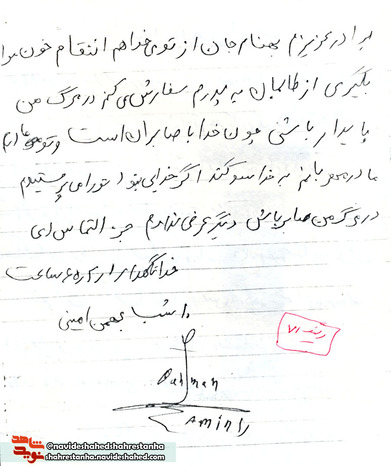 برادر عزیزم بهنام جان از تو می‌خواهم انتقام خون مرا
بگیری از ظالمان به پدرم سفارش می کنم در مرگ من
پایدار باشی چون خدا با صابران است و تو
مادر مهربانم به خدا سوگند اگر خدایی نبود تو را می پرستیدم
در مرگ من صابر باش دیگر عرضی ندارم جز التماس دعای
خدانگهدار ساعت
۱۰ شب بهمن امینی
Bahman
Amini
@navideshahedshahrestanha
shahrestanha.navideshahed.com